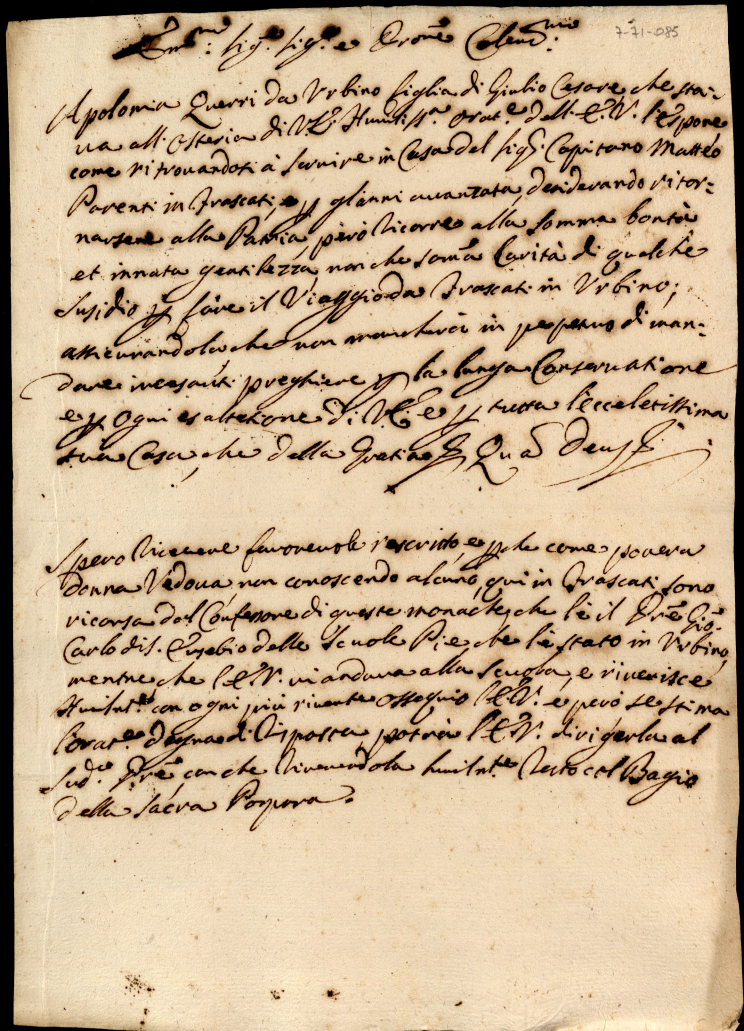 7-71-085
Em.mo sig.e sig.e e Prone Colend.mo
Apolonia Querri da Urbino figlia di Giulio Cesare, che sta:
ua all' Osteria di V.E. Humiliss.a orat.e dell' E.V. l'espone
come ritrouandosi à seruire in Casa del sig.r Capitano Matteo
Parenti in Frascati, e p gl'anni auanzata, desiderando ritor:
narsene alla Patria, però ricorre alla somma bontà
et innata gentilezza, non che soma Carità di qualche
susidio p fare il Viaggio da Frascati in Urbino;
assicurandola, che non mancherà in perpetuo di man:
dare incesanti preghiere p la lunga Conseruatione
e p ogni esaltatione di V.E. e p tutta l'eccelelissima
sua Casa, che della Gratia & Qua Deus &
Spero riceuere fauoreuole rescritto, e pche come pouera
donna Vedoua, non conoscendo alcuno, qui in Frascati, sono
ricorsa dal Confessore di queste monache, che lè il Pre Gio:
Carlo di S. Eusebio delle Scuole Pie che l'è stato in Urbino,
mentre, che l'E.V. ui andaua alla scuola, e riuerisce
Humilm.te con ogni più riuente ossequio l'E.V. e però se stima
l'orat.e degna di risposta potrà l'E.V. dirigerla al
sud.o Pre con che riuerendola humilm.te Resto col Bagio
della sacra Porpora.